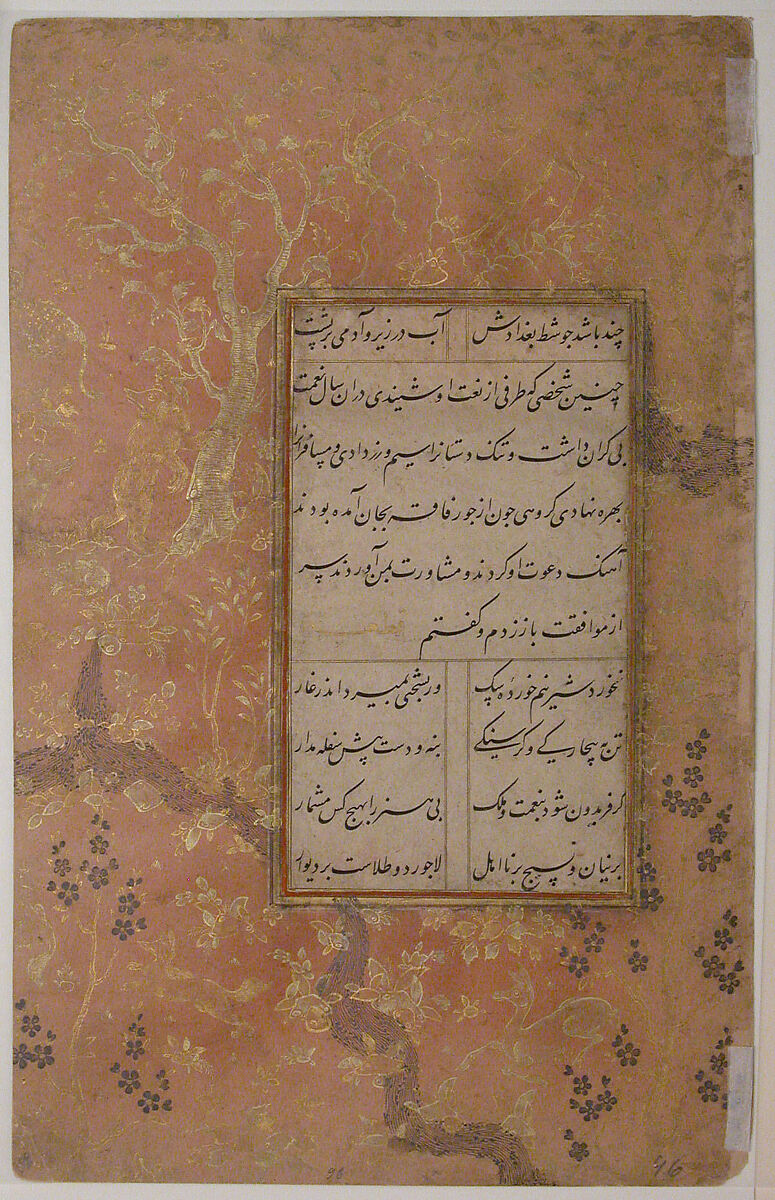 چند باشد جو شط بغدادش آب در زیر و آدمی بر پشت
چنین شخصی که طرفی از نعت او شنیدی دران سال نعمت
بی کران داشت و تنک دستانرا سیم و زر دادی و مسافرانرا
بهره نهادی کروهی جون از جور فاقه بجان آمده بودند
آهنک دعوت او کردند و مشاورت بمن آوردند سر
از موافقت باز زدم و کفتم
نخورد شیر نیم خورده سک ور بسختی بمیرد اندر غار
تن به بیچارکی و کرسنکی بنه و دست پیش سفله مدار
کر فریدون شود بنعمت و ملک بی هنر را بهیچ کس مشمار
برنیان و نسیج بر نااهل لاجورد و طلاست بر دیوار
96
96